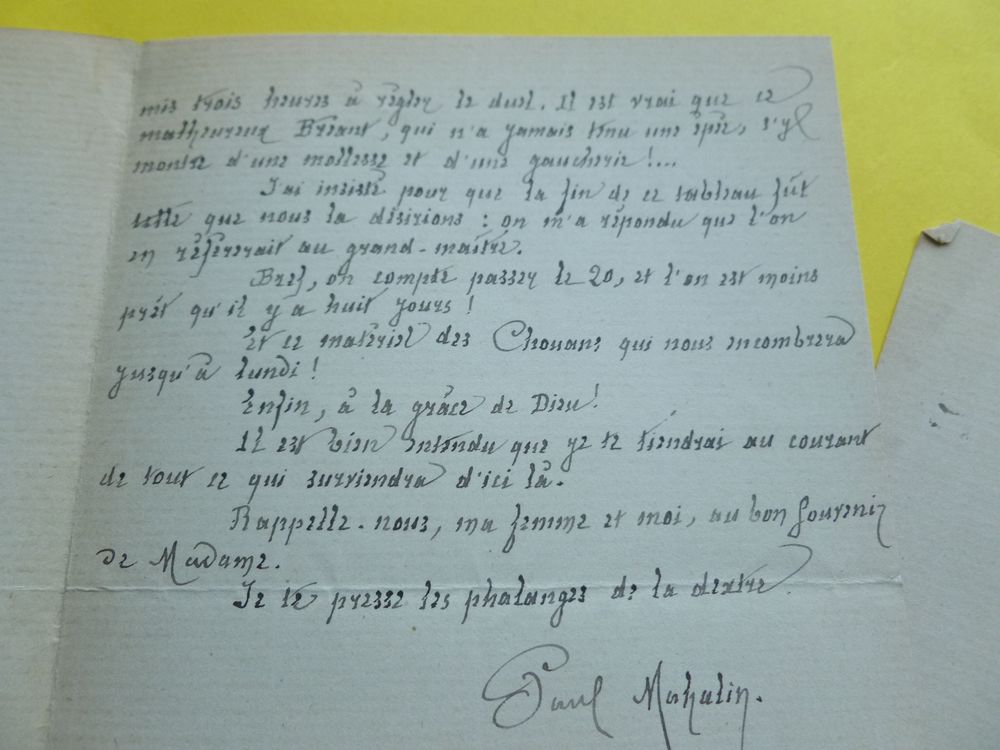 mis trois heures à régler le duel. Il est vrai que ce
malheureux Bréant, qui n'a jamais tenu une épée, s'y
montre d'une mollesse et d'une gaucherie !...
J'ai insisté pour que la fin de ce tableau fût
telle que nous la désirions : on m'a répondu que l'on
en référerait au grand-maître.
Bref, on compte passer le 20, et l'on est moins
prêt qu'il y a huit jours !
Et ce matériel des Chouans qui nous encombrera
jusqu'à lundi !
Enfin, à la grâce de Dieu !
Il est bien entendu que je te tiendrai au courant
de tout ce qui surviendra d'ici là.
Rappelle-nous, ma femme et moi, au bon souvenir
de Madame.
Je te presse les phalanges de la dextre
Paul Mahalin.